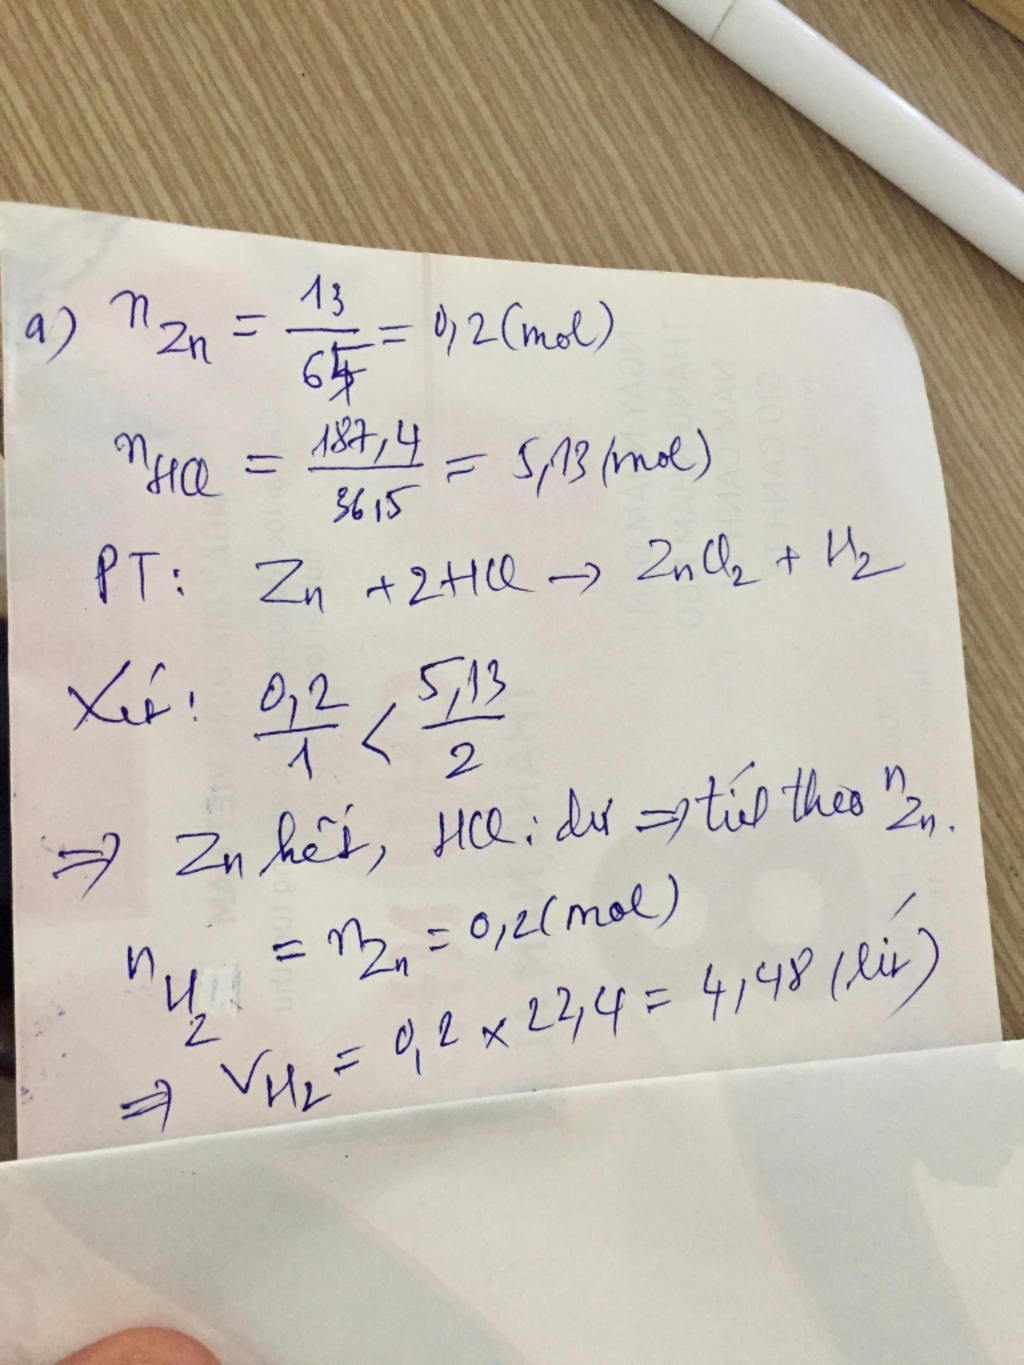 a) n Zn = 13/65 = 0,2 (mol)
n HCl = 187,4/36,5 = 5,13 (mol)
PT: Zn + 2HCl → ZnCl2 + H2
Xét: 0,2/1 < 5,13/2
⇒ Zn hết, HCl: dư ⇒ tính theo n Zn.
n H2 = n Zn = 0,2 (mol)
⇒ V H2 = 0,2 × 22,4 = 4,48 (lít)